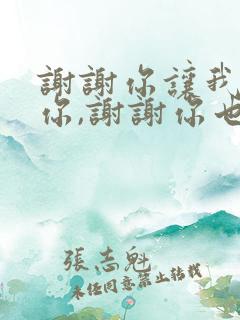 謝謝你讓我
你,謝謝你也
張志魁
未經同意禁止轉載